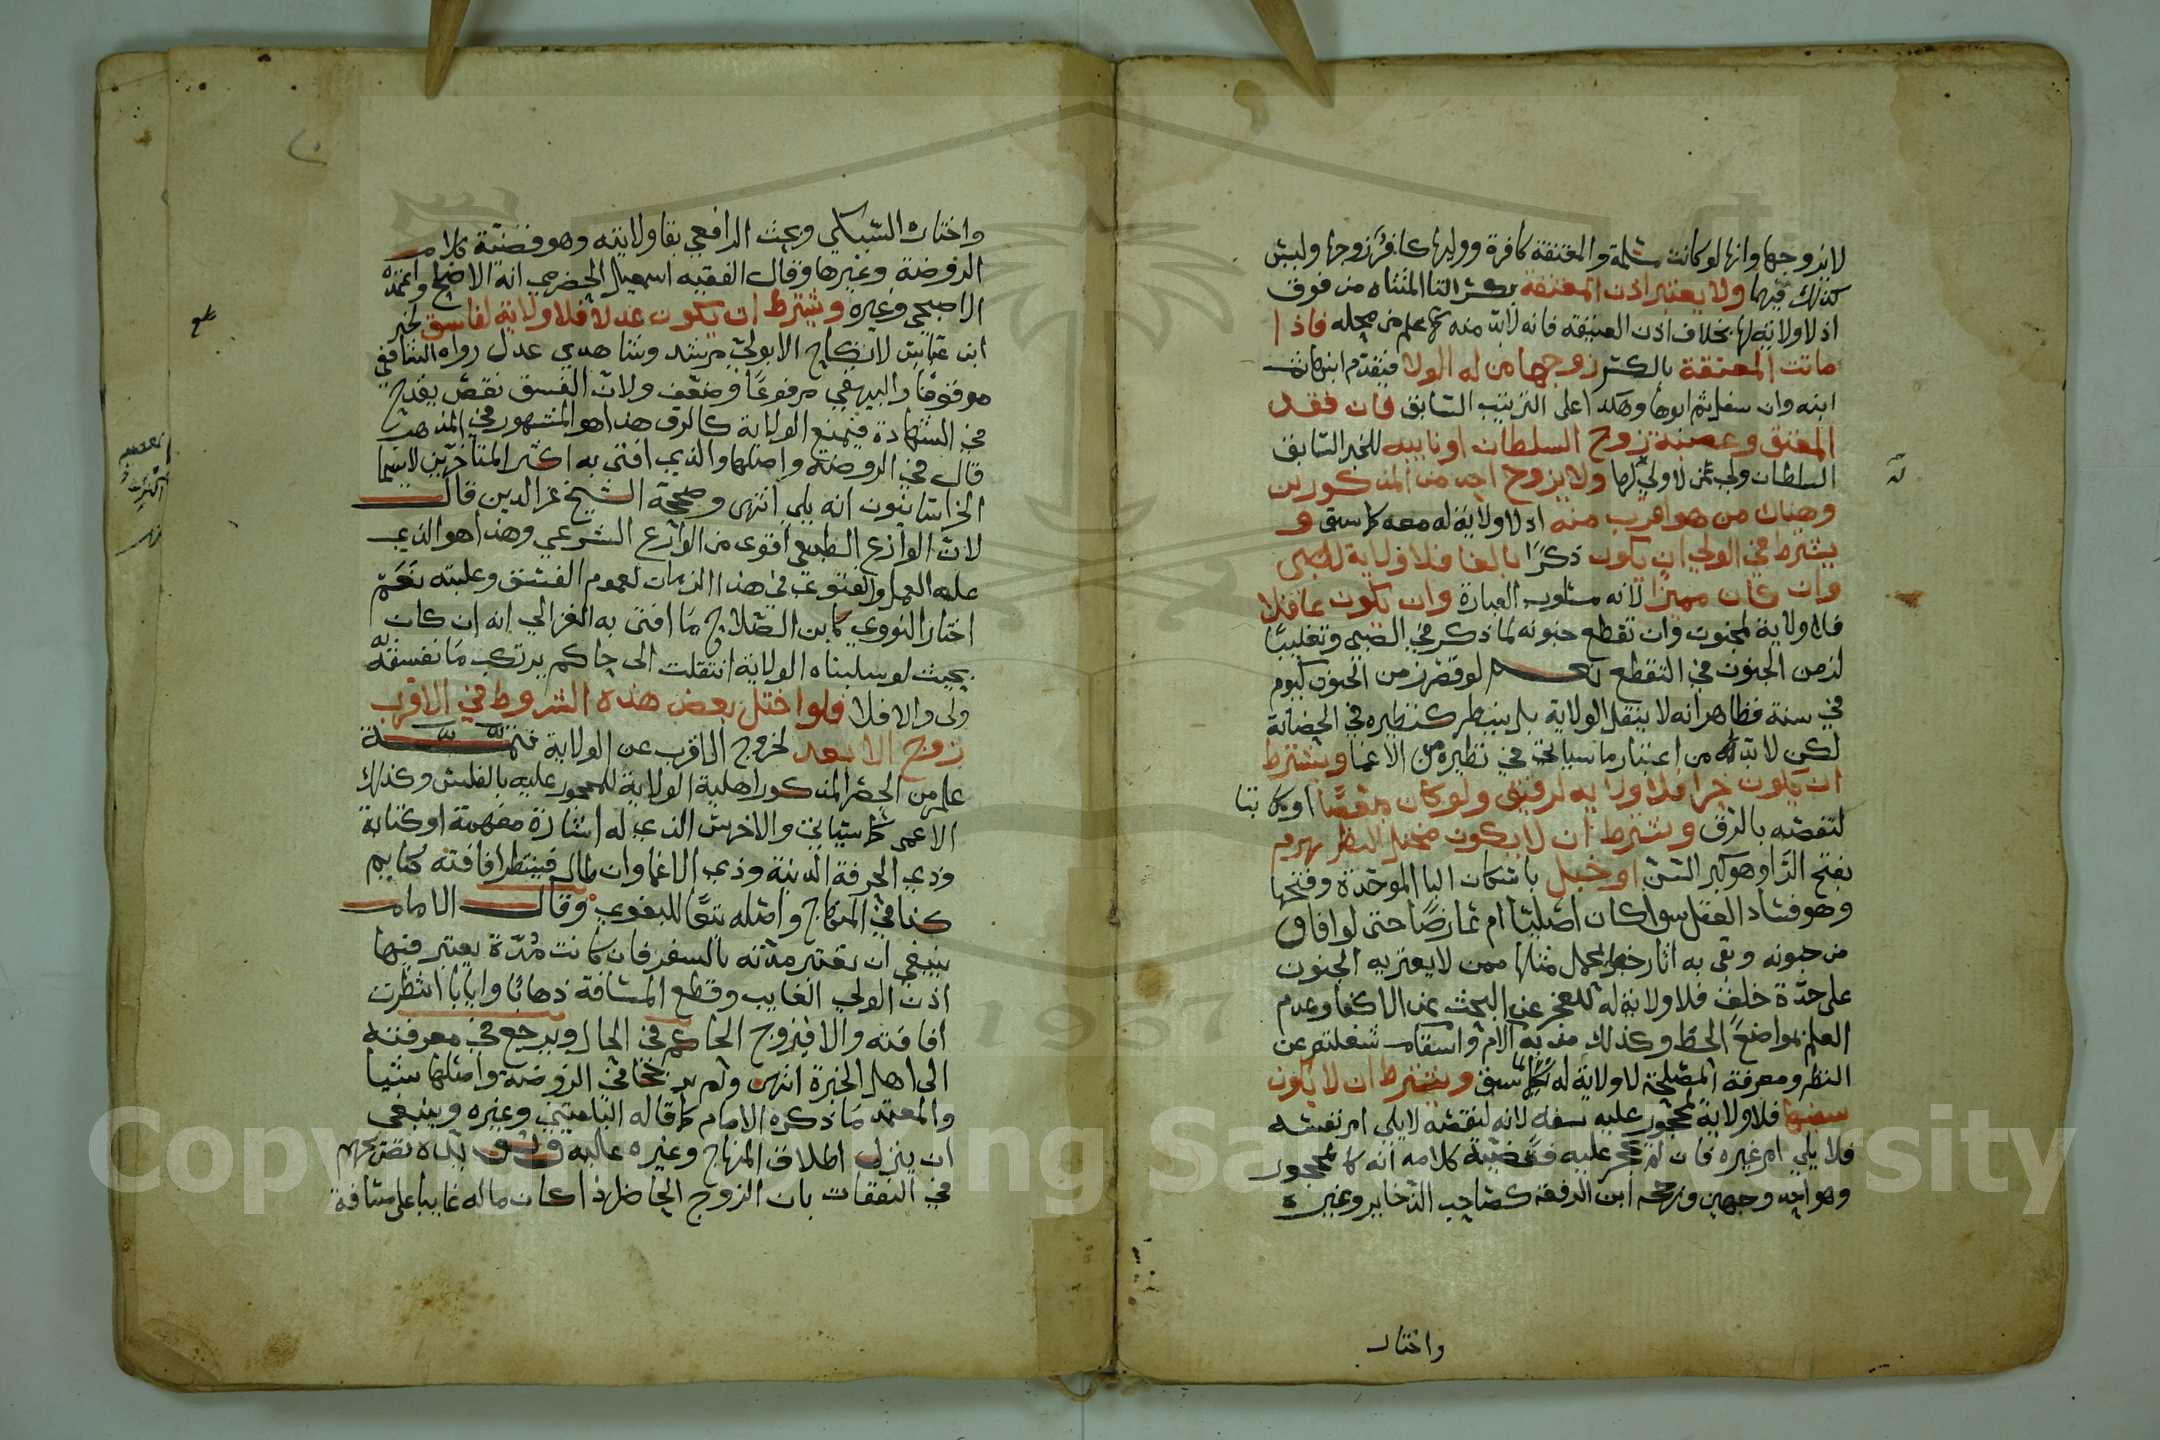 لا يزوجها وانها لو كانت مسلمة والمعتقة كافرة وولدها كافر زوجها وليس
كذلك فيهما ولا يعتبر اذن المعتقة بكسر التا المثناه من فوق
اذ لا ولاية لها بخلاف اذن العتيقه فانه لا بد منه كما علم من محله فاذا
ماتت المعتقة بالكسر زوجها من له الولا فيقدم ابنها ثم
ابنه وان سفل ثم ابوها وهكذا على الترتيب السابق فان فقد
المعتق وعصبته زوج السلطان او نايبه للخبر السابق
السلطان ولي من لا ولي لها ولا يزوج احد من المذكورين
وهناك من هو اقرب منه اذ لا ولاية له معه كما سبق و
يشترط في الولي ان يكون ذكرًا بالغا فلا ولاية لصبي
وان كان مميزا لانه مسلوب العبارة وان يكون عاقلا
فلا ولاية لمجنون وان تقطع جنونه لما ذكر في الصبي وتغليبًا
لزمن الجنون في التقطع نعم لو قصر زمن الجنون كيوم
في سنة فظاهر انه لا ينقل الولاية بل ينتظر كنظيره في الحضانة
لكن لا بد من اعتبار ما سيأتي في نظيره من الاغما ويشترط
ان يكون حرا فلا ولايه لرقيق ولو كان مبعضًا او مكاتبا
لنقصه بالرق ويشترط ان لا يكون مختل النظر بهرم
بفتح الرا وهو كبر السن او خبل باسكان البا الموحدة وفتحها
وهو فساد العقل سوا كان اصليًا ام عارضًا حتى لو افاق
من جنونه وبقي به اثار خبل يحمل مثلها ممن لا يعتريه الجنون
على حدة خلق فلا ولاية له للعجز عن البحث عن الاكفا وعدم
العلم بمواضع الحظ وكذلك من به آلام واسقام شغلته عن
النظر ومعرفة المصلحة لا ولاية له كما سبق ويشترط ان لا يكون
سفيها فلا ولاية لمحجور عليه بسفه لانه لنقصه لا يلي امر نفسه
فلا يلي امر غيره فان لم يحجر عليه فقضية كلامه انه كالمحجور
وهو احد وجهين ورجحه ابن الرفعة كصاحب الذخاير وغيره
واختار
واختاره السبكي وبحث الرافعي بقا ولايته وهو قضية كلام
الروضة وغيرها وقال الفقيه اسمعيل الحضرمي انه الاصح واعتمده
الاصبحي وغيره ويشترط ان يكون عدلا فلا ولاية لفاسق لخبر
ابن عباس لا نكاح الا بولي مرشد وشاهدي عدل رواه الشافعي
موقوفا والبيهقي مرفوعًا وضعف ولان الفسق نقص يقدح
في الشهادة فيمنع الولاية كالرق هذا هو المشهور في المذهب
قال في الروضة واصلها والذي افتى به اكثر المتأخرين لاسيما
الخراسانيون انه يلي انتهى وصححه الشيخ عز الدين قال
لان الوازع الطبيعي اقوى من الوازع الشرعي وهذا هو الذي
عليه العمل والفتوى في هذا الزمان لعموم الفسق وعليته نعم
اختار النووي كابن الصلاح ما افتى به الغزالي انه ان كان
بحيث لو سلبناه الولاية انتقلت الى حاكم يرتكب ما نفسقه به
ولي والا فلا فلو اختل بعض هذه الشروط في الاقرب
زوج الابعد لخروج الاقرب عن الولاية تتمة
علم من الحصر المذكور اهلية الولاية للمحجور عليه بالفلس وكذلك
الاعمى كما سيأتي والاخرس الذي له اشارة مفهمة او كتابة
وذي الحرفة الدنية وذي الاغما وان طال فينتظر افاقته كنايم
كذا في المنهاج واصله تبعًا للبغوي وقال الامام
ينبغي ان تعتبر مدته بالسفر فان كانت مُدّة يعتبر فيها
اذن الولي الغايب وقطع المسافة ذهابا وايابا انتظرت
افاقته والا فيزوج الحاكم في الحال ويرجع في معرفته
الى اهل الخبرة انتهى ولم يرجحا في الروضة واصلها شيئا
والمعتمد ما ذكره الامام كما قاله البلقيني وغيره وينبغي
ان ينزل اطلاق المنهاج وغيره عليه تصريحهم
في النفقات بان الزوج الحاضر اذا كان ماله غايبا على مسافة
Copyright © King Saud University
1957